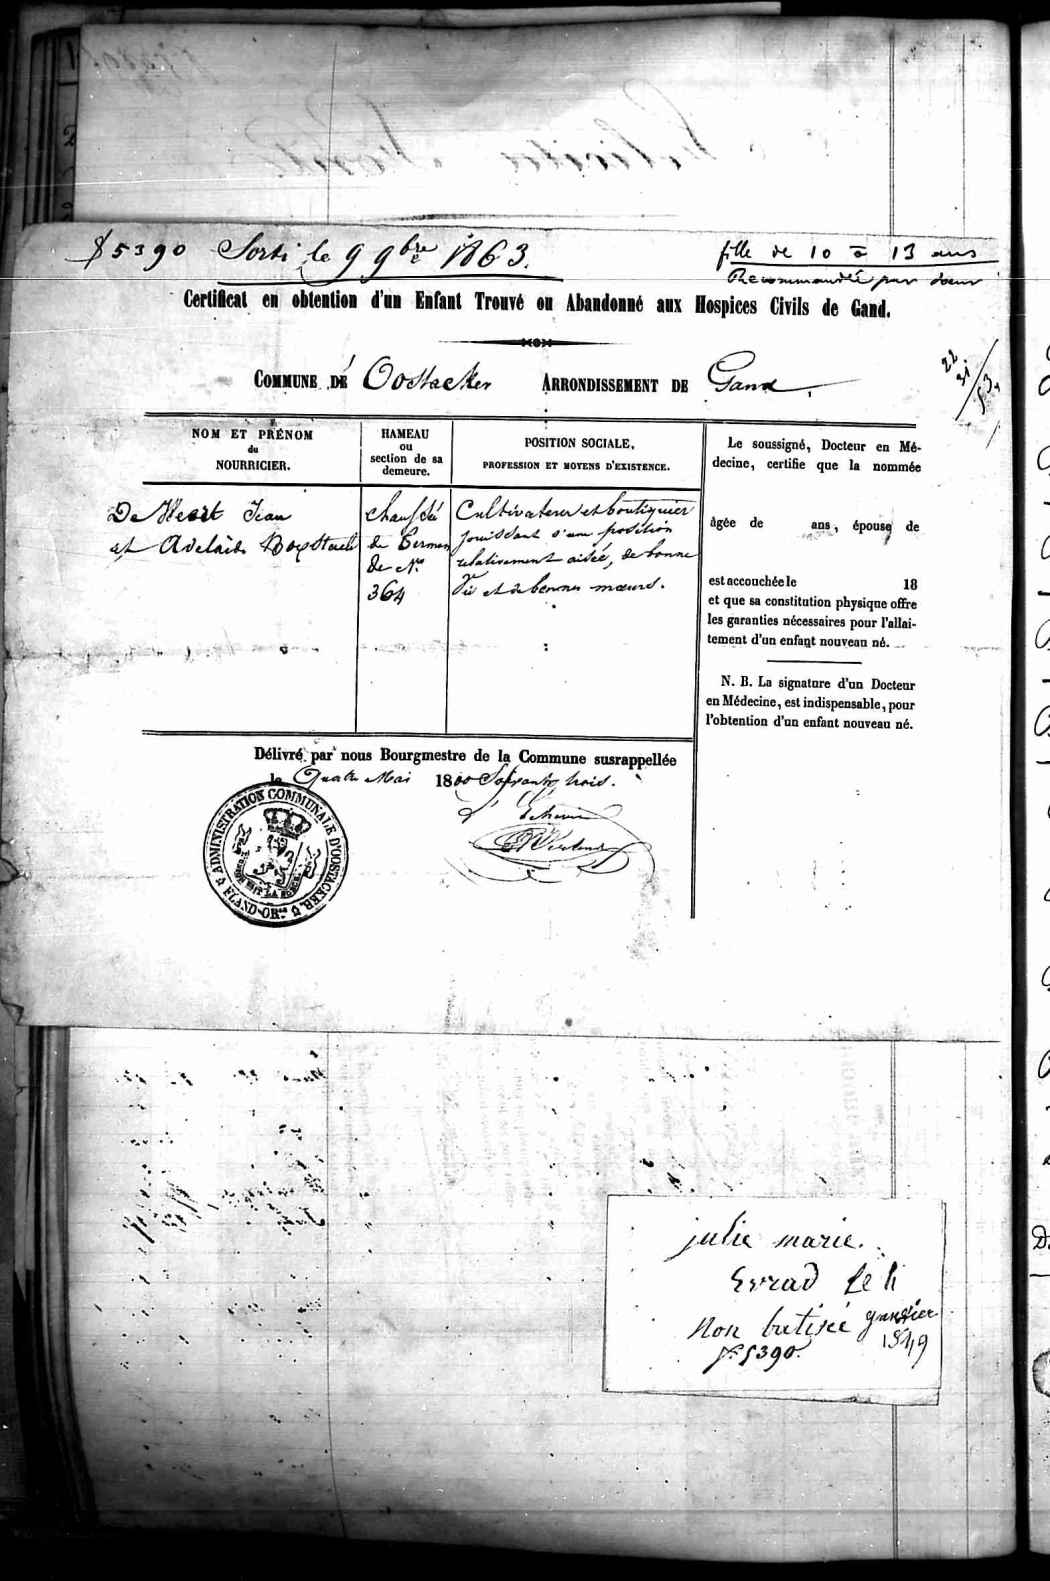 5390 Sorti le 9 9bre 1863.
fille de 10 à 13 ans
Recommandée par sœur
Certificat en obtention d'un Enfant Trouvé ou Abandonné aux Hospices Civils de Gand.
COMMUNE DE Oostacker ARRONDISSEMENT DE Gand
NOM ET PRÉNOM
du
NOURRICIER.
HAMEAU
ou
section de sa
demeure.
POSITION SOCIALE,
PROFESSION ET MOYENS D'EXISTENCE.
De Jean
et Adelaide
chaussée
de
de No
364
Cultivateur et boutiquier
jouissant d'une position
relativement aisée, de bonne
vie et de bonnes mœurs.
Le soussigné, Docteur en Mé-
decine, certifie que la nommée
âgée de ans, épouse de
est accouchée le 18
et que sa constitution physique offre
les garanties nécessaires pour l'allai-
tement d'un enfant nouveau né.
N. B. La signature d'un Docteur
en Médecine, est indispensable, pour
l'obtention d'un enfant nouveau né.
Délivré par nous Bourgmestre de la Commune susrappellée
le Quatre Mai 1800 Soixante trois.
ADMINISTRATION COMMUNALE D'OOSTACKER
FLAND-ORle
julie marie.
Evrad
Non batisée
1849
5390